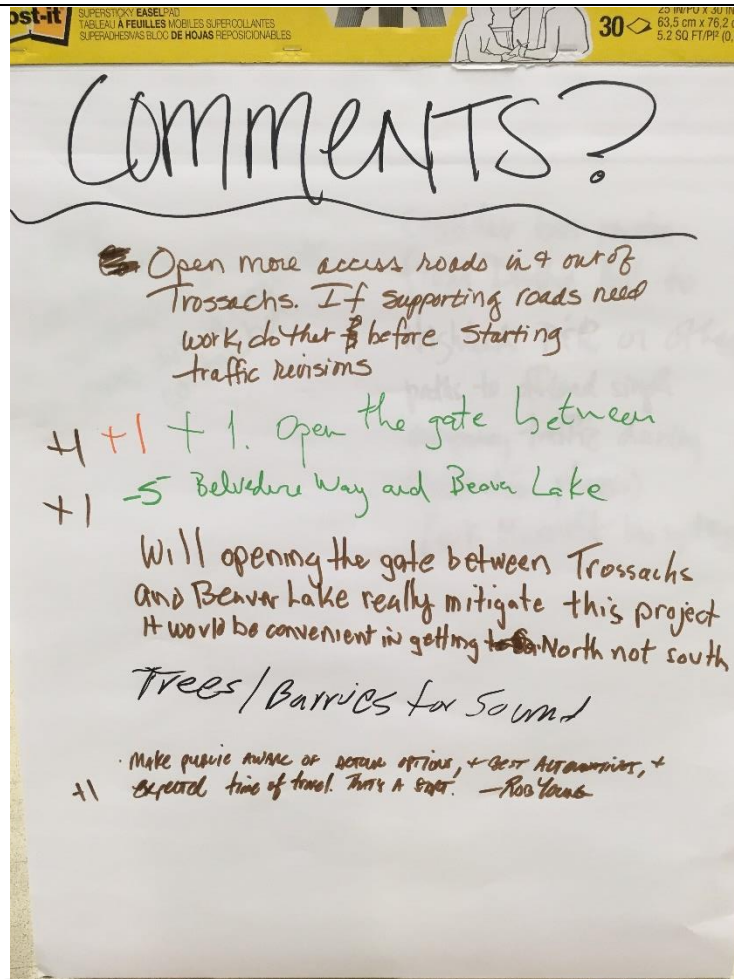 ost-it
SUPERSTICKY EASELPAD
TABLEAU À FEUILLES MOBILES SUPERCOLLANTES
SUPERADHESIVAS BLOC DE HOJAS REPOSICIONABLES
30
63,5 cm x 76,2
5.2 SQ FT/PI² (0,
COMMENTS?
Open more access roads in & out of
Trossachs. If supporting roads need
work, do that before starting
traffic revisions
+1 +1 +1. Open the gate between
+1 -5 Belvedere Way and Beaver Lake
Will opening the gate between Trossachs
and Beaver Lake really mitigate this project
It would be convenient in getting North not south
Trees/Barries for Sound
· Make public aware of detour options, + best alternatives, +
+1 expected time of travel. That's a start. —Rob Young